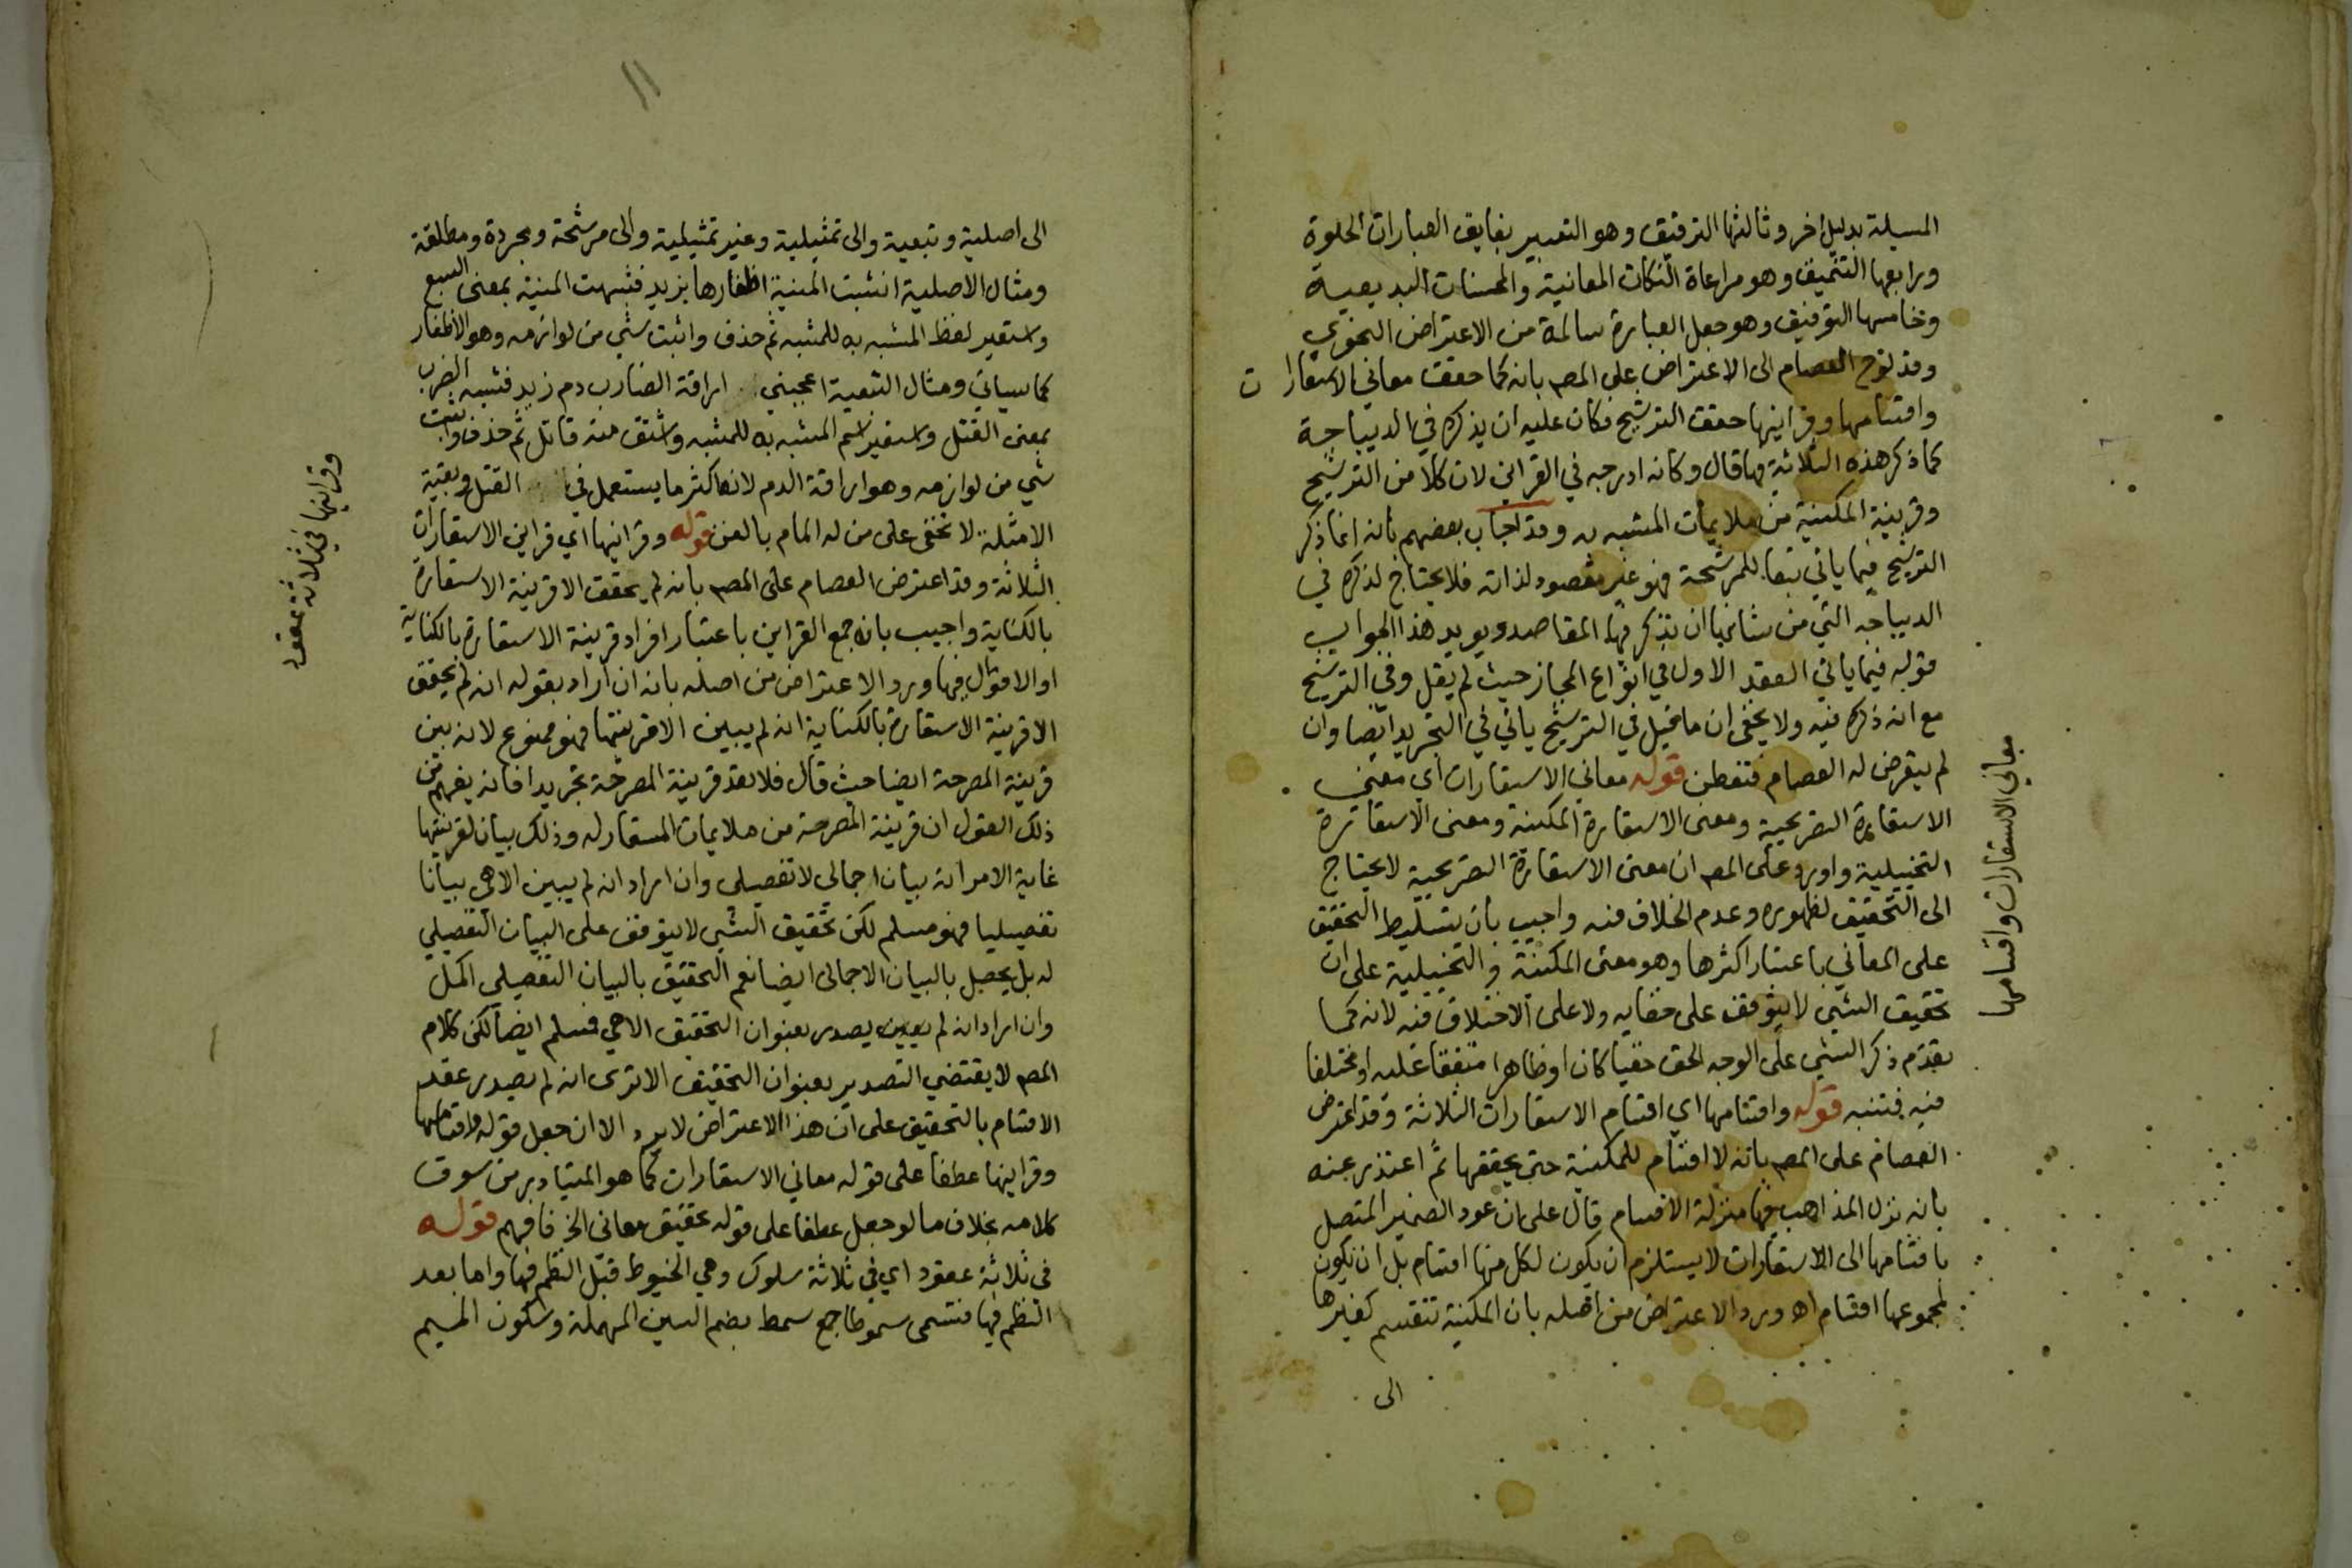 المسيلة بدليل اخر وثالثها الترقيق وهو التعبير بفايق العبارات الحلوة
ورابعها التنميق وهو مراعاة النكات المعانية والمحسنات البديعية
وخامسها التوفيق وهو جعل العبارة سالمة من الاعتراض النحوي
وقد لوح العصام الى الاعتراض على المصـ بانه كما حقق معاني الاستعارات
واقسامها وقراينها حقق الترشيح فكان عليه ان يذكره في الديباجة
كما ذكر هذه الثلاثة فيها قال وكانه ادرجه في القراين لان كلا من الترشيح
وقرينة المكنية من ملايمات المشبه به وقد اجاب بعضهم بانه انما ذكر
الترشيح فيما ياتي تبعا للمرشحة فهو غير مقصود لذاته فلا يحتاج لذكره في
الديباجه التي من شانها ان يذكر فيها المقاصد ويويد هذا الجواب
قوله فيما ياتي العقد الاول في انواع المجاز حيث لم يقل وفي الترشيح
مع انه ذكره فيه ولا يخفى ان ما قيل في الترشيح ياتي في التجريد ايضا وان
لم يتعرض له العصام فتفطن قوله معاني الاستعارات اي معنى
الاستعارة التصريحية ومعنى الاستعارة المكنية ومعنى الاستعارة
التخييلية واورد على المصـ ان معنى الاستعارة التصريحية لا يحتاج
الى التحقيق لظهوره وعدم الخلاف فيه واجيب بان تسليط التحقيق
على المعاني باعتبار اكثرها وهو معنى المكنية والتخييلية على ان
تحقيق الشي لا يتوقف على خفايه ولا على الاختلاف فيه لانه كما
تقدم ذكر الشي على الوجه الحق خفيا كان او ظاهرا متفقا عليه او مختلفا
فيه فتنبه قوله واقسامها اي اقسام الاستعارات الثلاثة وقد اعترض
العصام على المصـ بانه لا اقسام للمكنية حتى يحققها ثم اعتذر عنه
بانه نزل المذاهب فيها منزلة الاقسام قال على ان عود الضمير المتصل
باقسامها الى الاستعارات لا يستلزم ان يكون لكل منها اقسام بل ان يكون
لمجموعها اقسام اهـ ورد الاعتراض من اصله بان المكنية تنقسم كغيرها
الى
معاني الاستعارات واقسامها
الى اصلية وتبعية والى تمثيلية وغير تمثيلية والى مرشحة ومجردة ومطلقة
ومثال الاصلية انشبت المنية اظفارها بزيد فشبهت المنية بمعنى السبع
واستعير لفظ المشبه به للمشبه ثم حذف واثبت شي من لوازمه وهو الاظفار
كما سياتي ومثال التبعية اعجبني اراقة الضارب دم زيد فشبه الضرب
بمعنى القتل واستعير اسم المشبه به للمشبه واشتق منه قاتل ثم حذف واثبت
شي من لوازمه وهو اراقة الدم لانها كثر ما يستعمل في القتل وبقية
الامثلة لا تخفى على من له المام بالفن قوله وقراينها اي قراين الاستعارات
الثلاثة وقد اعترض العصام على المصـ بانه لم يحقق الا قرينة الاستعارة
بالكناية واجيب بانه جمع القراين باعتبار افراد قرينة الاستعارة بالكناية
او الاقوال فيها ورد الاعتراض من اصله بانه ان اراد بقوله انه لم يحقق
الا قرينة الاستعارة بالكناية انه لم يبين الا قرينتها فهو ممنوع لانه بين
قرينة المصرحة ايضا حيث قال فلا تعد قرينة المصرحة تجريدا فانه يفهم من
ذلك القول ان قرينة المصرحة من ملايمات المستعار له وذلك بيان لقرينتها
غاية الامر انه بيان اجمالي لا تفصيلي وان اراد انه لم يبين الا هي بيانا
تفصيليا فهو مسلم لكن تحقيق الشي لا يتوقف على البيان التفصيلي
له بل يحصل بالبيان الاجمالي ايضا نعم التحقيق بالبيان التفصيلي اكمل
وان اراد انه لم يصدر بعنوان التحقيق الا هي فمسلم ايضا لكن كلام
المصـ لا يقتضي التصدير بعنوان التحقيق الا ترى انه لم يصدر عقد
الاقسام بالتحقيق على ان هذا الاعتراض لا يرد الا ان جعل قوله واقسامها
وقراينها عطفا على قوله معاني الاستعارات كما هو المتبادر من سوق
كلامه بخلاف ما لو جعل عطفا على قوله تحقيق معاني الخ فافهم قوله
في ثلاثة عقود اي في ثلاثة سلوك وهي الخيوط قبل النظم فيها واما بعد
النظم فيها فتسمى سموطا جمع سمط بضم السين المهملة وسكون الميم
وقراينها في ثلاثة عقود
١١